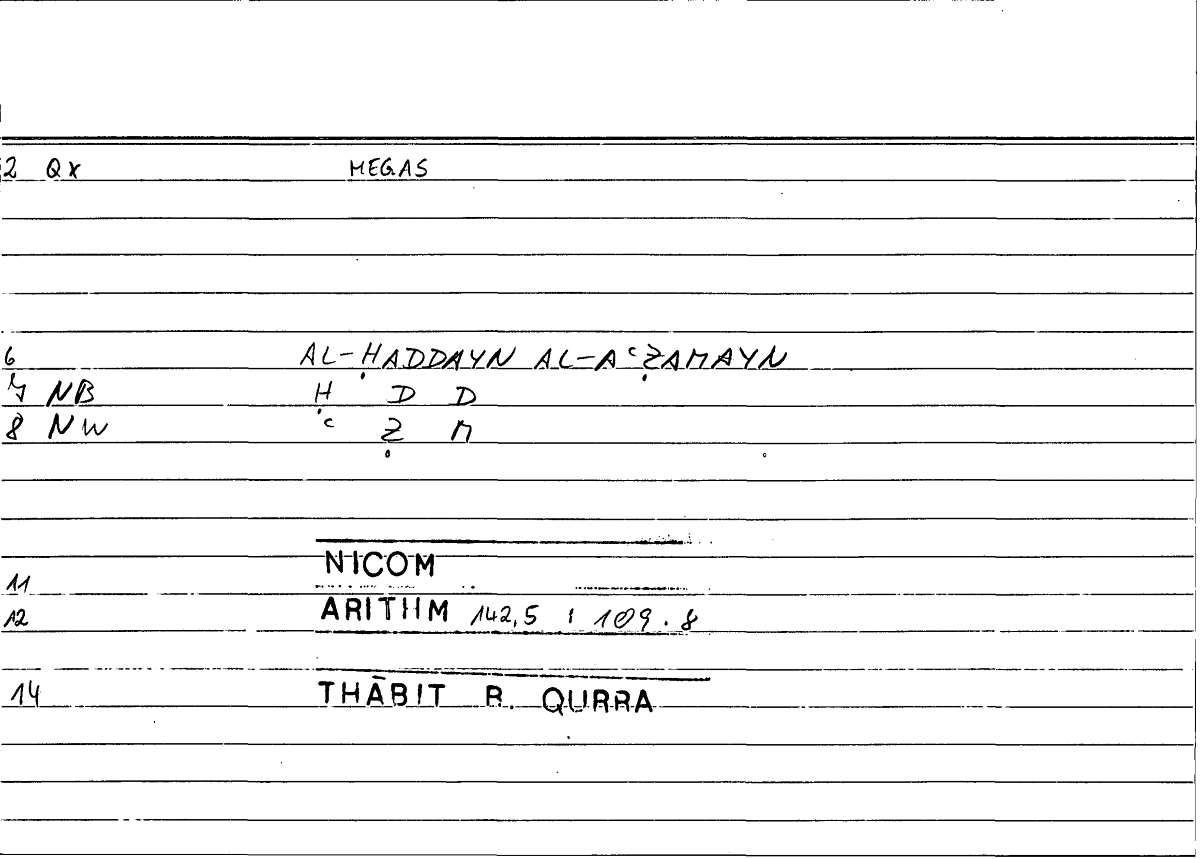 2 QX MEGAS
6 AL-ḤADDAYN AL-AʿẒAMAYN
7 NB Ḥ D D
8 NW ʿ Ẓ M
11 NICOM
12 ARITHM 142,5 ; 109.8
14 THĀBIT B. QURRA